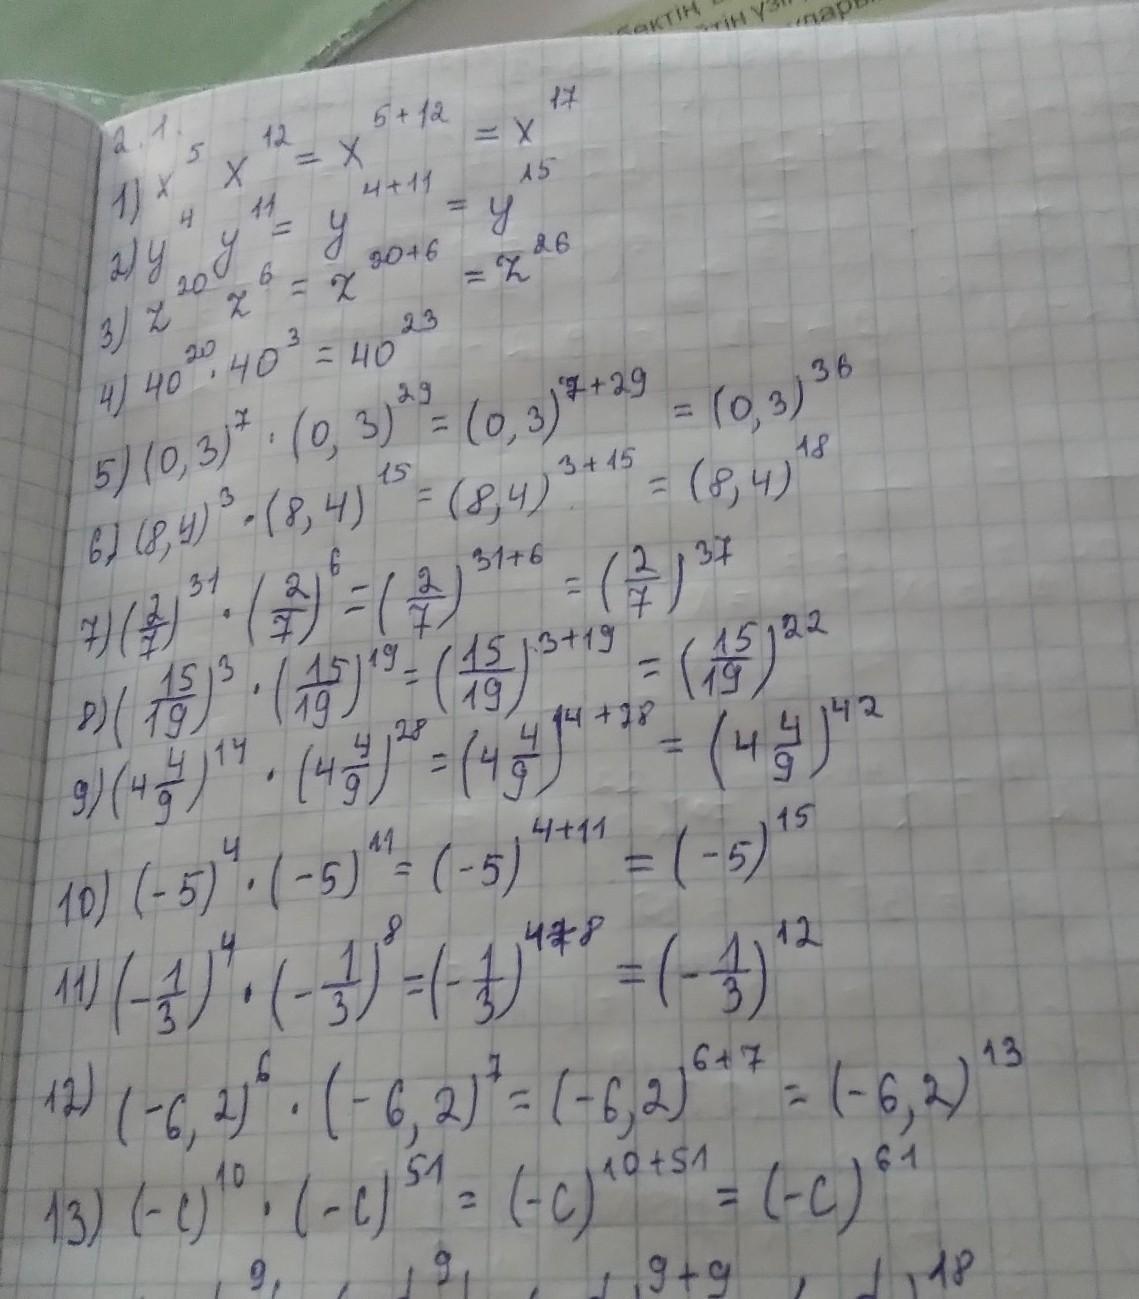 бектің
тің үзі
улары
2.1.
1) x⁵ x¹² = x⁵⁺¹² = x¹⁷
2) y⁴ y¹¹ = y⁴⁺¹¹ = y¹⁵
3) z²⁰ z⁶ = z²⁰⁺⁶ = z²⁶
4) 40²⁰ · 40³ = 40²³
5) (0,3)⁷ · (0,3)²⁹ = (0,3)⁷⁺²⁹ = (0,3)³⁶
6) (8,4)³ · (8,4)¹⁵ = (8,4)³⁺¹⁵ = (8,4)¹⁸
7) (2/7)³¹ · (2/7)⁶ = (2/7)³¹⁺⁶ = (2/7)³⁷
8) (15/19)³ · (15/19)¹⁹ = (15/19)³⁺¹⁹ = (15/19)²²
9) (4 4/9)¹⁴ · (4 4/9)²⁸ = (4 4/9)¹⁴⁺²⁸ = (4 4/9)⁴²
10) (-5)⁴ · (-5)¹¹ = (-5)⁴⁺¹¹ = (-5)¹⁵
11) (-1/3)⁴ · (-1/3)⁸ = (-1/3)⁴⁺⁸ = (-1/3)¹²
12) (-6,2)⁶ · (-6,2)⁷ = (-6,2)⁶⁺⁷ = (-6,2)¹³
13) (-c)¹⁰ · (-c)⁵¹ = (-c)¹⁰⁺⁵¹ = (-c)⁶¹
9 9 9+9 18